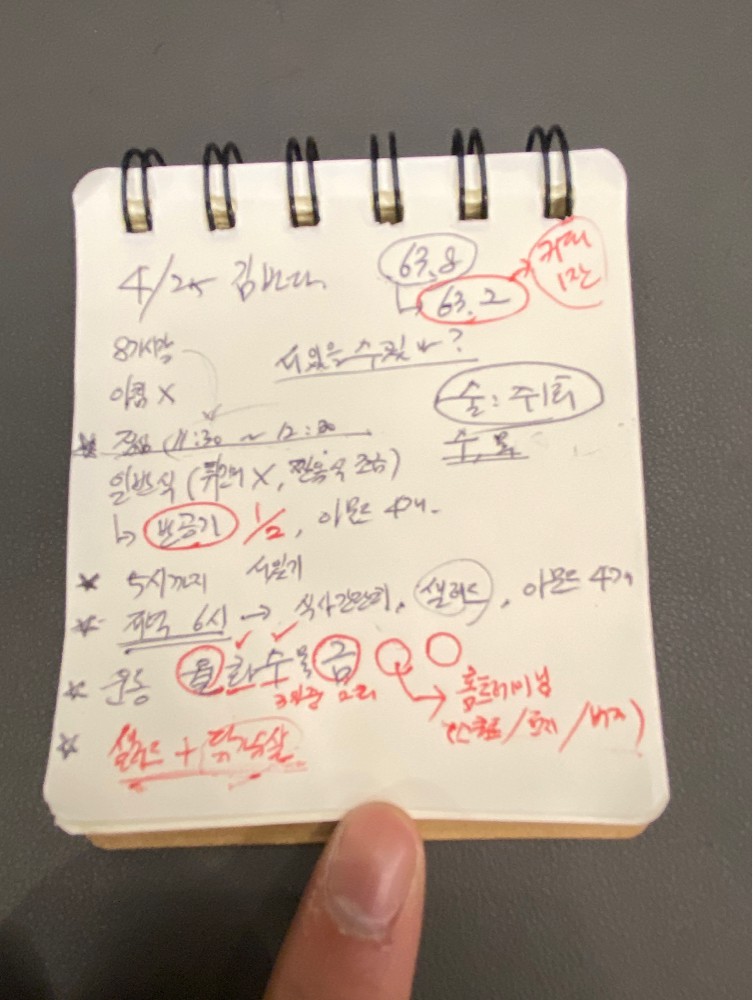 4/25 63.8
63.2
커피
1잔
8시
아침 X
서있을 수 있나?
술: 주1회
수, 목
점심 (11:30 ~ 12:30
일반식 (튀김 X, 짠음식 조금)
↳ 반공기 1/2, 아몬드 4개.
5시까지 서있기
저녁 6시 → 식사간단히, 샐러드, 아몬드 4개
운동 월화수목금
홈트레이닝
(스쿼트/ /버피)
샐러드 + 닭가슴살